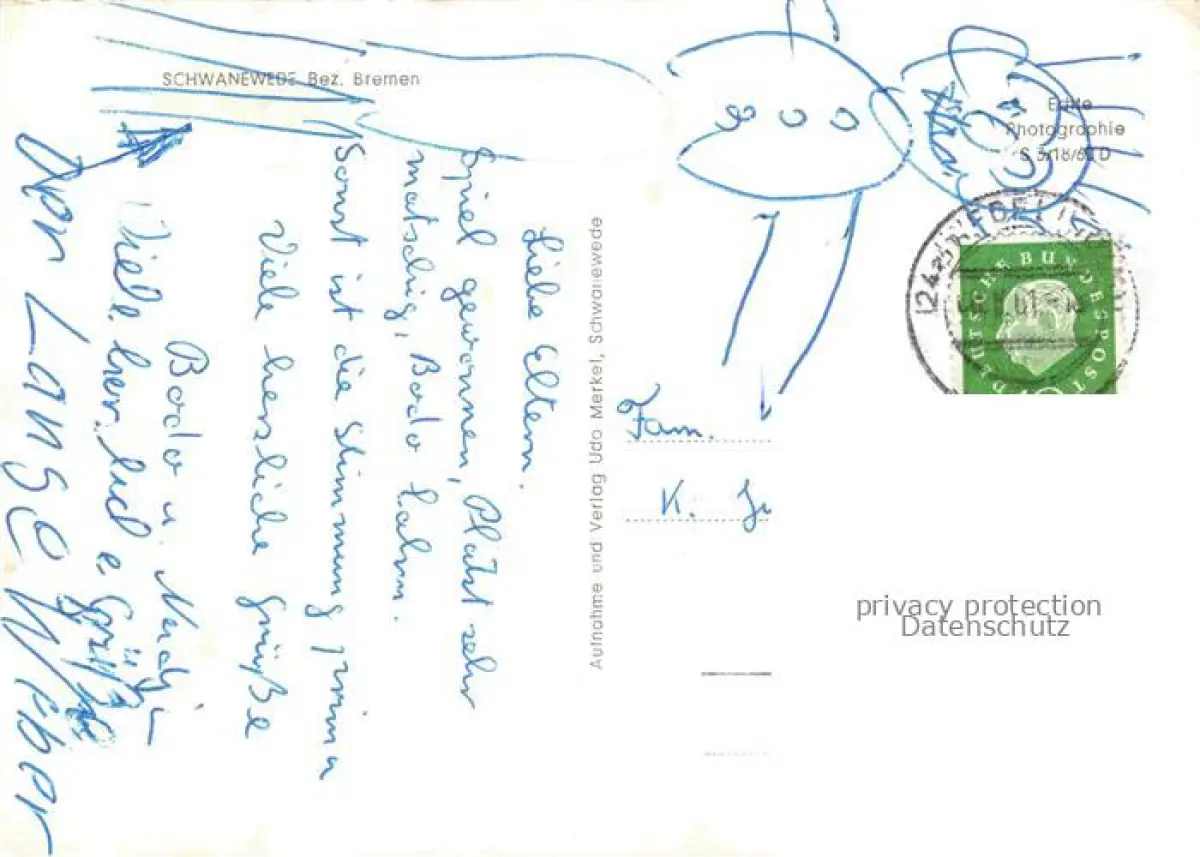 SCHWANEWEDE Bez. Bremen
Echte
Photographie
S 3/18/60 D
DEUTSCHE BUNDESPOST
Liebe Eltern.
Spiel gewonnen, Platz sehr
matschig, Bodo Lahm.
Sonst ist die Stimmung prima
Viele herzliche Grüße
Bodo u.
Viele herzliche Grüße
Aufnahme und Verlag Udo Merkel, Schwanewede
Fam.
K.
privacy protection
Datenschutz